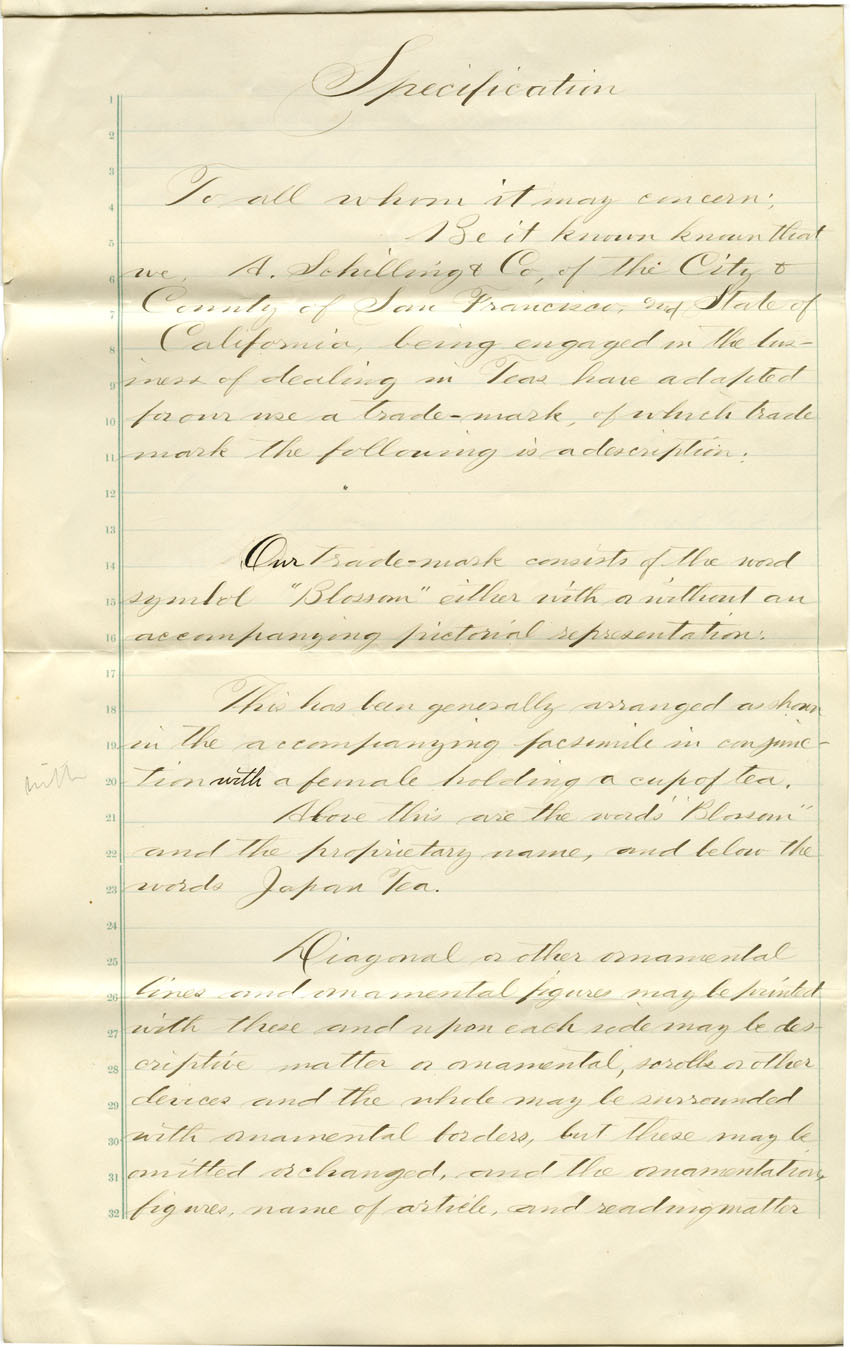 Specification
1
2
3
4 To all whom it may concern;
5 Be it known known that
6 we, A. Schilling & Co, of the City &
7 County of San Francisco, and State of
8 California, being engaged in the bus-
9 iness of dealing in Teas have adapted
10 for our use a trade-mark, of which trade
11 mark the following is a description:
12
13
14 Our trade-mark consists of the word
15 symbol "Blossom" either with or without an
16 accompanying pictorial representation.
17
18 This has been generally arranged as shown
19 in the accompanying facsimile in conjunc-
with
20 tion with a female holding a cup of tea.
21 Above this are the words "Blossom"
22 and the proprietary name, and below the
23 words Japan Tea.
24
25 Diagonal or other ornamental
26 lines and ornamental figures may be printed
27 with these and upon each side may be des-
28 criptive matter or ornamental, scrolls or other
29 devices and the whole may be surrounded
30 with ornamental borders, but these may be
31 omitted or changed, and the ornamentation,
32 figures, name of article, and reading matter